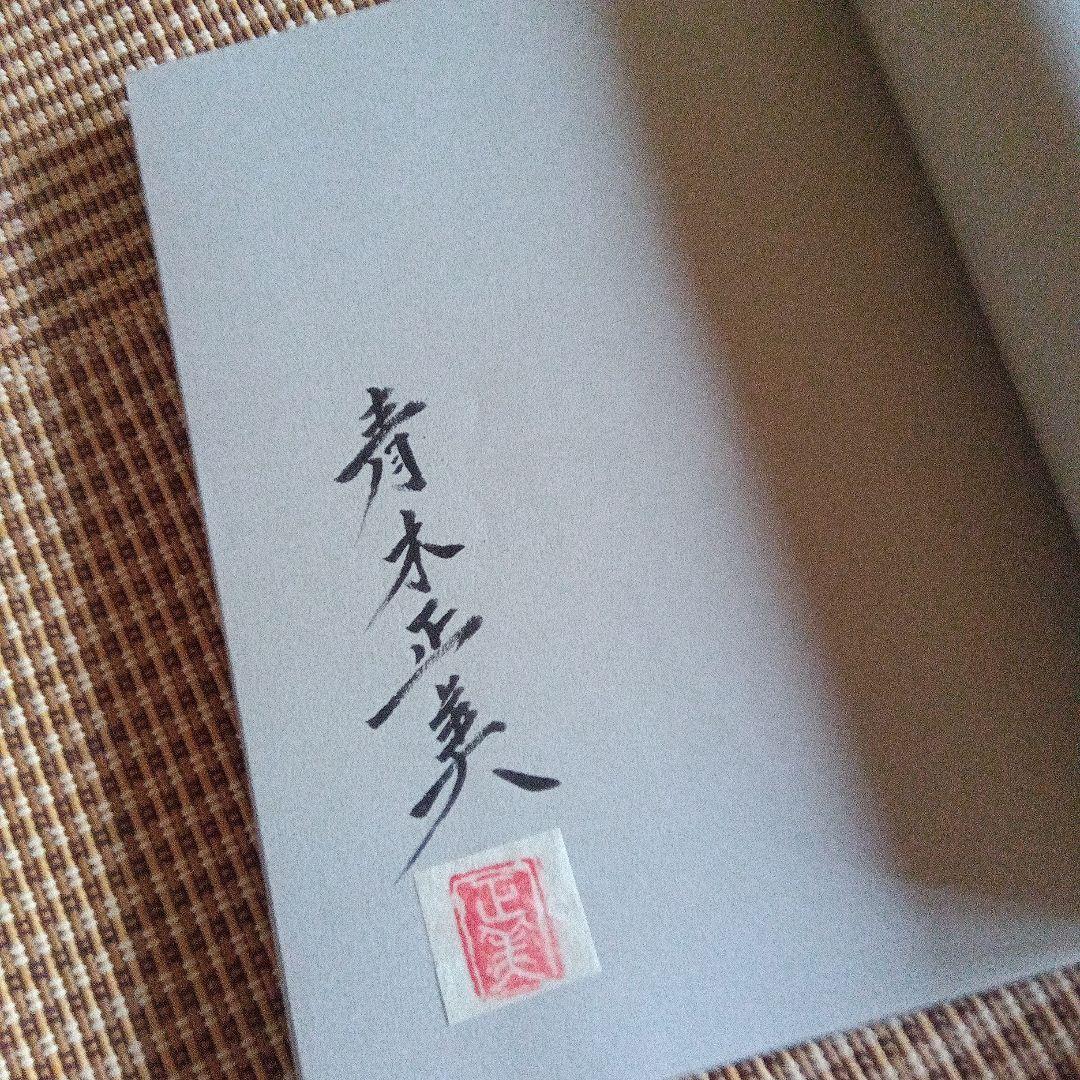 青木正美
正美